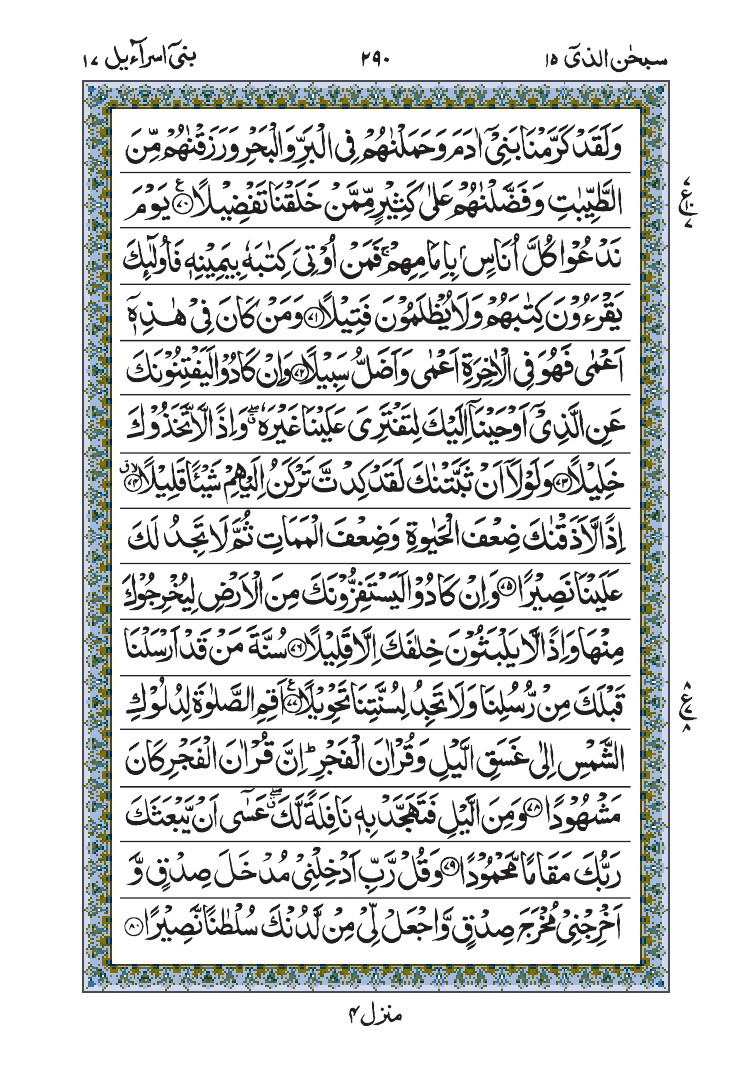 سبحٰن الذیٓ ۱۵
۲۹۰
بنیٓ اسرآءیل ۱۷
وَلَقَدْ كَرَّمْنَا بَنِیْۤ اٰدَمَ وَحَمَلْنٰهُمْ فِی الْبَرِّ وَالْبَحْرِ وَرَزَقْنٰهُمْ مِّنَ
الطَّیِّبٰتِ وَفَضَّلْنٰهُمْ عَلٰی كَثِیْرٍ مِّمَّنْ خَلَقْنَا تَفْضِیْلًا ﴿۷۰﴾ یَوْمَ
نَدْعُوْا كُلَّ اُنَاسٍۭ بِاِمَامِهِمْ ۚ فَمَنْ اُوْتِیَ كِتٰبَهٗ بِیَمِیْنِهٖ فَاُولٰٓئِكَ
یَقْرَءُوْنَ كِتٰبَهُمْ وَلَا یُظْلَمُوْنَ فَتِیْلًا ﴿۷۱﴾ وَمَنْ كَانَ فِیْ هٰذِهٖۤ
اَعْمٰی فَهُوَ فِی الْاٰخِرَةِ اَعْمٰی وَاَضَلُّ سَبِیْلًا ﴿۷۲﴾ وَاِنْ كَادُوْا لَیَفْتِنُوْنَكَ
عَنِ الَّذِیْۤ اَوْحَیْنَاۤ اِلَیْكَ لِتَفْتَرِیَ عَلَیْنَا غَیْرَهٗ ۖ وَاِذًا لَّاتَّخَذُوْكَ
خَلِیْلًا ﴿۷۳﴾ وَلَوْلَاۤ اَنْ ثَبَّتْنٰكَ لَقَدْ كِدْتَّ تَرْكَنُ اِلَیْهِمْ شَیْـًٔا قَلِیْلًا ﴿۷۴﴾
اِذًا لَّاَذَقْنٰكَ ضِعْفَ الْحَیٰوةِ وَضِعْفَ الْمَمَاتِ ثُمَّ لَا تَجِدُ لَكَ
عَلَیْنَا نَصِیْرًا ﴿۷۵﴾ وَاِنْ كَادُوْا لَیَسْتَفِزُّوْنَكَ مِنَ الْاَرْضِ لِیُخْرِجُوْكَ
مِنْهَا وَاِذًا لَّا یَلْبَثُوْنَ خِلٰفَكَ اِلَّا قَلِیْلًا ﴿۷۶﴾ سُنَّةَ مَنْ قَدْ اَرْسَلْنَا
قَبْلَكَ مِنْ رُّسُلِنَا وَلَا تَجِدُ لِسُنَّتِنَا تَحْوِیْلًا ﴿۷۷﴾ اَقِمِ الصَّلٰوةَ لِدُلُوْكِ
الشَّمْسِ اِلٰی غَسَقِ الَّیْلِ وَقُرْاٰنَ الْفَجْرِ ؕ اِنَّ قُرْاٰنَ الْفَجْرِ كَانَ
مَشْهُوْدًا ﴿۷۸﴾ وَمِنَ الَّیْلِ فَتَهَجَّدْ بِهٖ نَافِلَةً لَّكَ ۖ عَسٰۤی اَنْ یَّبْعَثَكَ
رَبُّكَ مَقَامًا مَّحْمُوْدًا ﴿۷۹﴾ وَقُلْ رَّبِّ اَدْخِلْنِیْ مُدْخَلَ صِدْقٍ وَّ
اَخْرِجْنِیْ مُخْرَجَ صِدْقٍ وَّاجْعَلْ لِّیْ مِنْ لَّدُنْكَ سُلْطٰنًا نَّصِیْرًا ﴿۸۰﴾
ع
ع
منزل ۴